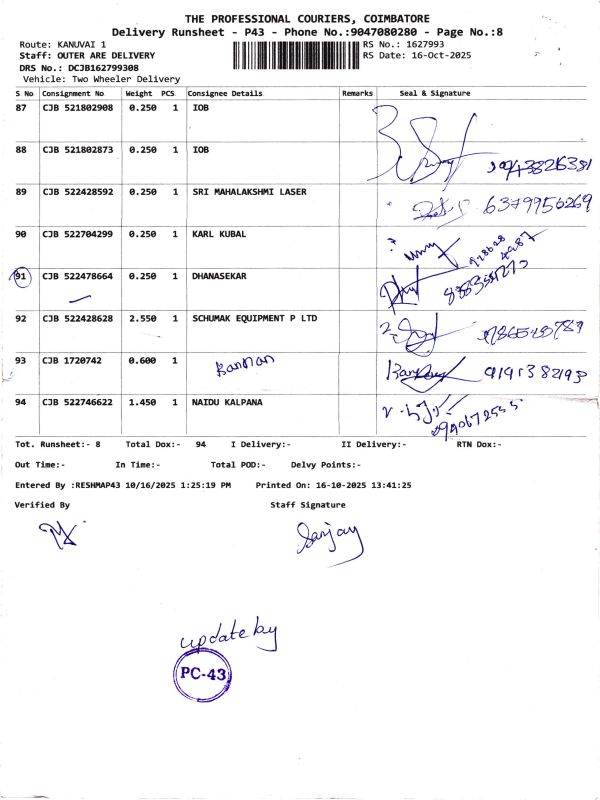 THE PROFESSIONAL COURIERS, COIMBATORE
Delivery Runsheet - P43 - Phone No.:9047080280 - Page No.:8
Route: KANUVAI 1 RS No.: 1627993
Staff: OUTER ARE DELIVERY RS Date: 16-Oct-2025
DRS No.: DCJB162799308
Vehicle: Two Wheeler Delivery
S No Consignment No Weight PCS Consignee Details Remarks Seal & Signature
87 CJB 521802908 0.250 1 IOB
88 CJB 521802873 0.250 1 IOB
89 CJB 522428592 0.250 1 SRI MAHALAKSHMI LASER 6379956269
90 CJB 522704299 0.250 1 KARL KUBAL
91 CJB 522478664 0.250 1 DHANASEKAR
92 CJB 522428628 2.550 1 SCHUMAK EQUIPMENT P LTD
93 CJB 1720742 0.600 1 Bannan
94 CJB 522746622 1.450 1 NAIDU KALPANA
Tot. Runsheet:- 8 Total Dox:- 94 I Delivery:- II Delivery:- RTN Dox:-
Out Time:- In Time:- Total POD:- Delvy Points:-
Entered By :RESHMAP43 10/16/2025 1:25:19 PM Printed On: 16-10-2025 13:41:25
Verified By Staff Signature
Sanjay
update by
PC-43